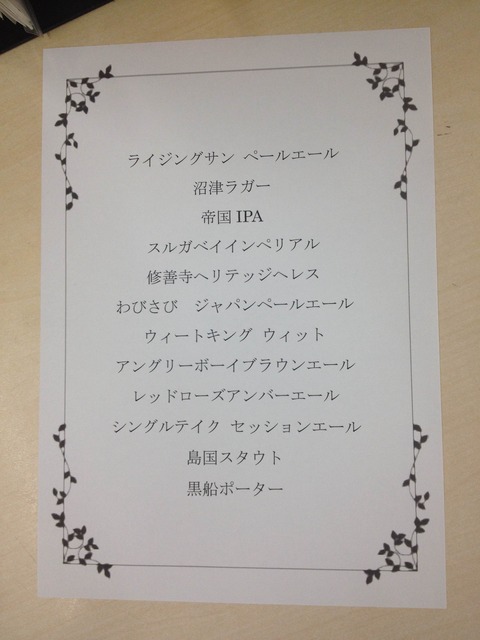 ライジングサン ペールエール
沼津ラガー
帝国 IPA
スルガベイインペリアル
修善寺ヘリテッジヘレス
わびさび　ジャパンペールエール
ウィートキング ウィット
アングリーボーイブラウンエール
レッドローズアンバーエール
シングルテイク セッションエール
島国スタウト
黒船ポーター